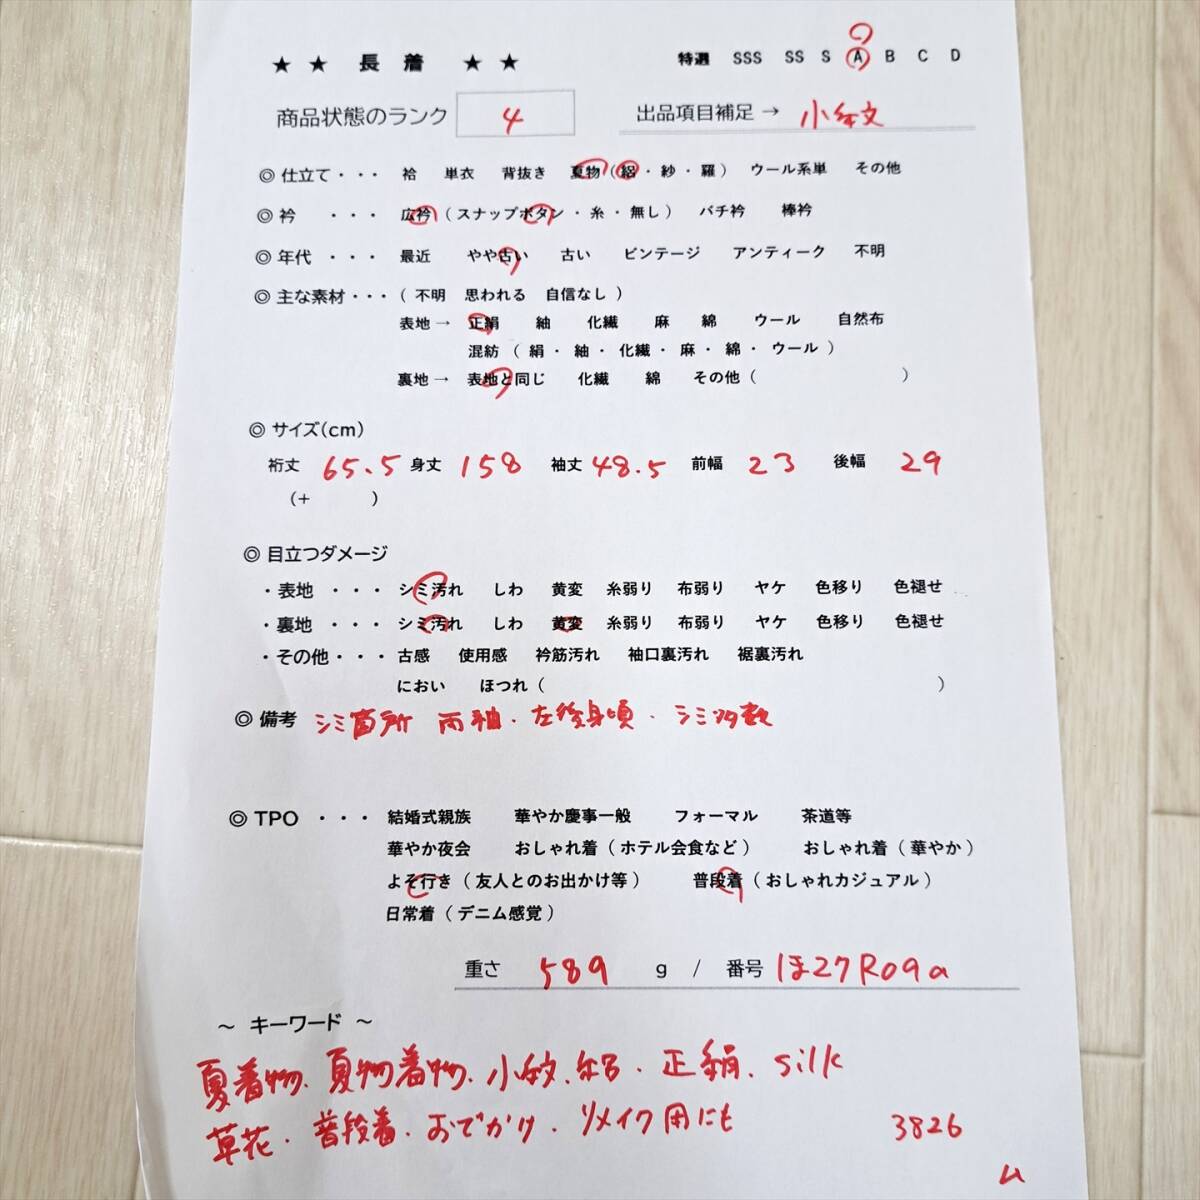 ★ ★ 長 着 ★ ★ 特選 SSS SS S A B C D
商品状態のランク 4 出品項目補足 → 小紋
◎ 仕立て・・・ 袷 単衣 背抜き 夏物（絽・紗・羅） ウール系単 その他
◎ 衿 ・・・ 広衿（スナップボタン・糸・無し） バチ衿 棒衿
◎ 年代・・・ 最近 やや古い 古い ビンテージ アンティーク 不明
◎ 主な素材・・・（ 不明 思われる 自信なし ）
表地 → 正絹 紬 化繊 麻 綿 ウール 自然布
混紡（ 絹・紬・化繊・麻・綿・ウール ）
裏地 → 表地と同じ 化繊 綿 その他（ ）
◎ サイズ(cm)
裄丈 65.5 身丈 158 袖丈 48.5 前幅 23 後幅 29
(＋ )
◎ 目立つダメージ
・表地 ・・・ シミ汚れ しわ 黄変 糸弱り 布弱り ヤケ 色移り 色褪せ
・裏地 ・・・ シミ汚れ しわ 黄変 糸弱り 布弱り ヤケ 色移り 色褪せ
・その他・・・ 古感 使用感 衿筋汚れ 袖口裏汚れ 裾裏汚れ
におい ほつれ（ ）
◎ 備考 シミ箇所 両袖・左後身頃・シミ多数
◎ TPO ・・・ 結婚式親族 華やか慶事一般 フォーマル 茶道等
華やか夜会 おしゃれ着（ホテル会食など） おしゃれ着（華やか）
よそ行き（友人とのお出かけ等） 普段着（おしゃれカジュアル）
日常着（デニム感覚）
重さ 589 g / 番号 ほ27R09a
～ キーワード ～
夏着物、夏物着物、小紋、絽・正絹、silk
草花・普段着・おでかけ・リメイク用にも 3826
ム